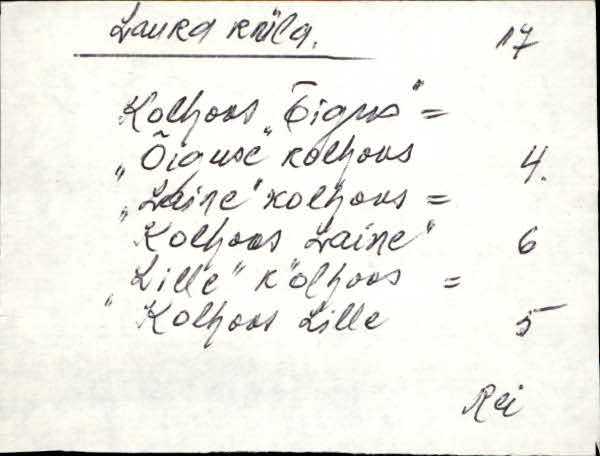 Lauka küla. 17
Kolhoos „Õigus" =
„Õiguse" kolhoos 4.
„Laine" kolhoos =
Kolhoos „Laine" 6
„Lille" kolhoos =
Kolhoos Lille 5
Rei